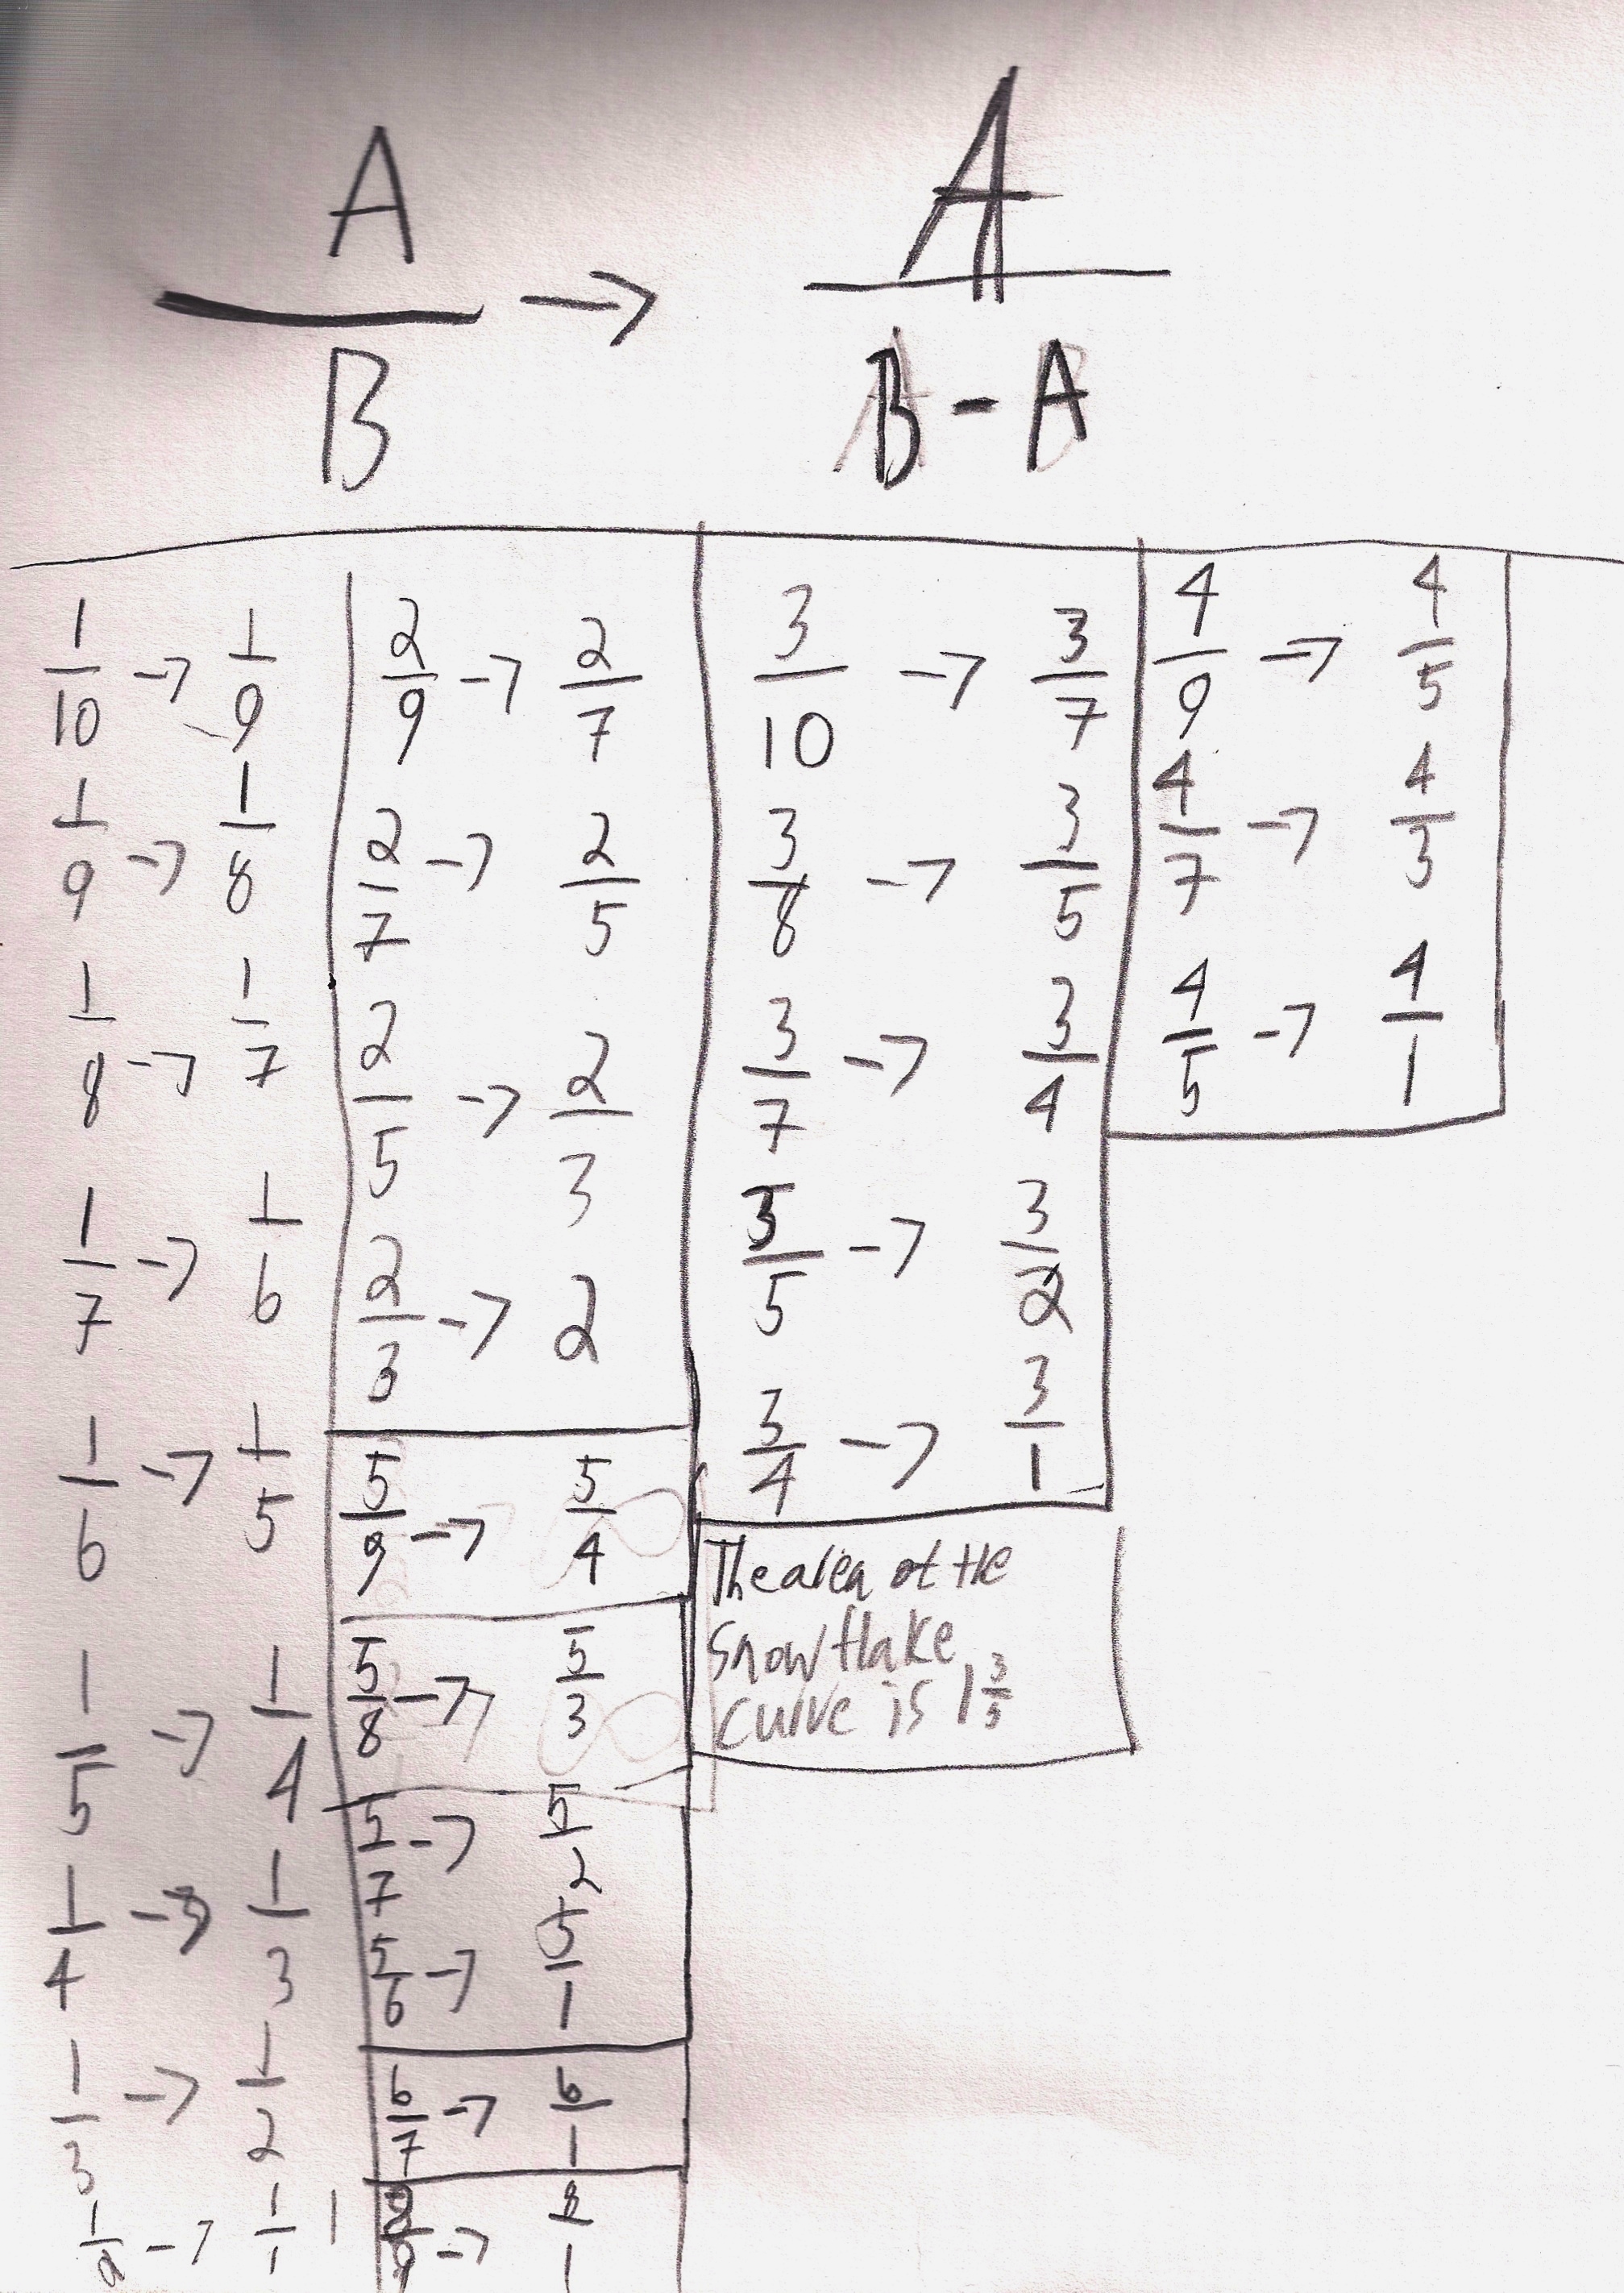 A/B → A/(B-A)
1/10 → 1/9
1/9 → 1/8
1/8 → 1/7
1/7 → 1/6
1/6 → 1/5
1/5 → 1/4
1/4 → 1/3
1/3 → 1/2
1/2 → 1/1 1
2/9 → 2/7
2/7 → 2/5
2/5 → 2/3
2/3 → 2
5/9 → 5/4
5/8 → 5/3
5/7 → 5/2
5/6 → 5/1
6/7 → 6/1
8/9 → 8/1
3/10 → 3/7
3/8 → 3/5
3/7 → 3/4
3/5 → 3/2
3/4 → 3/1
The area of the
snowflake
curve is 1 3/5
4/9 → 4/5
4/7 → 4/3
4/5 → 4/1